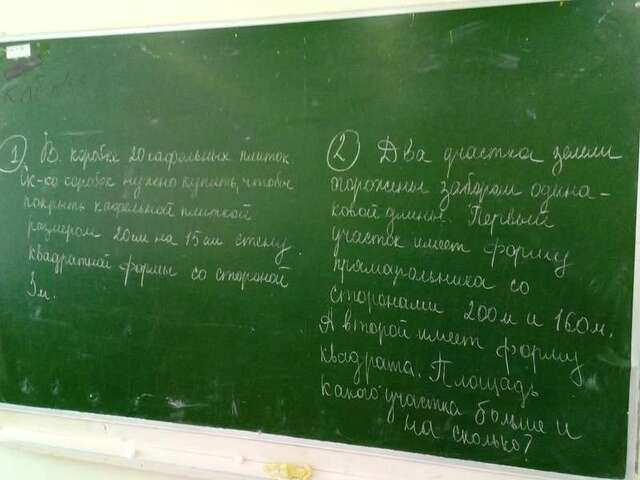 1 В коробке 20 кафельных плиток.
Ск-ко коробок нужно купить, чтобы
покрыть кафельной плиткой
размером 20см на 15см стену
квадратной формы со стороной
3м.
2 Два участка земли
огорожены забором одина-
ковой длины. Первый
участок имеет форму
прямоугольника со
сторонами 200м и 160м.
А второй имеет форму
квадрата. Площадь
какого участка больше и
на сколько?